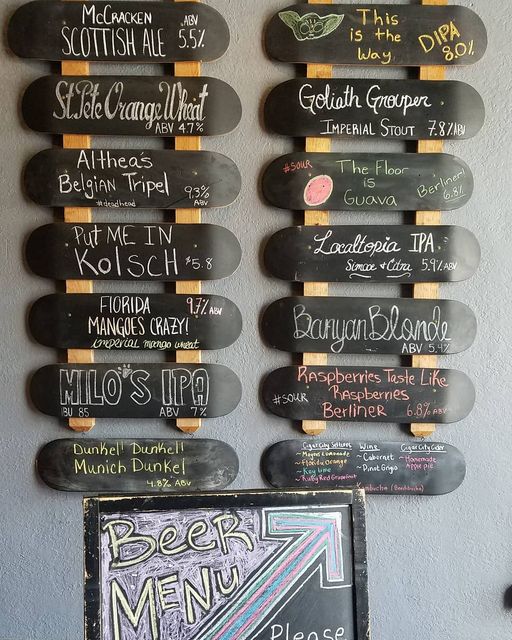 McCracken
SCOTTISH ALE
ABV
5.5%
St.Pete Orange Wheat
ABV 4.7%
Althea's
Belgian Tripel
#deadhead
9.3%
ABV
Put ME IN
KOLSCH
5.8
FlORIDA
MANGOES CRAZY!
9.7% ABV
imperial mango wheat
MILO'S IPA
IBU 85
ABV 7%
Dunkel! Dunkel!
Munich Dunkel
4.8% ABV
This
is the
Way
DIPA
8.0%
Goliath Grouper
IMPERIAL STOUT 7.8% ABV
#SOUR
The Floor
is
Guava
Berliner!
6.8%
Localtopia IPA
Simcoe + Citra 5.9% ABV
Banyan Blonde
ABV 5.4%
Raspberries Taste Like
Raspberries
#SOUR
Berliner 6.8% ABV
Cigar City Seltzers
~Florida Orange
~Key lime
~Ruby Red Grapefruit
Wine
~Cabernet
~Pinot Grigio
Cigar City Cider
~Homemade
Apple pie
BEER
MENU
Please